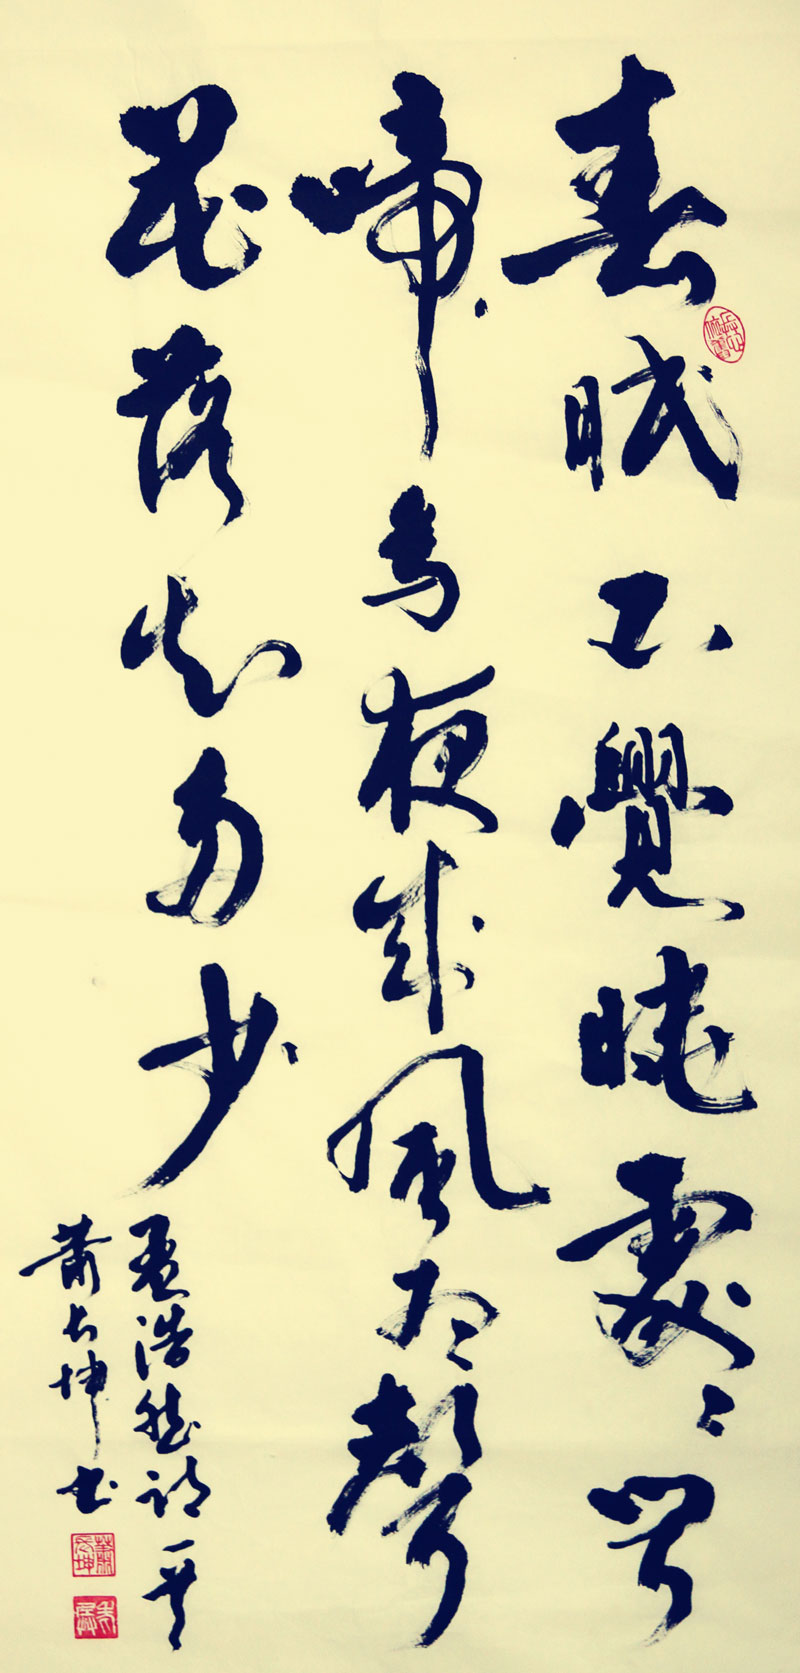 春眠不覺曉處々聞
啼鳥夜來風雨聲
花落知多少
孟浩然詩一首
蕭長坤書